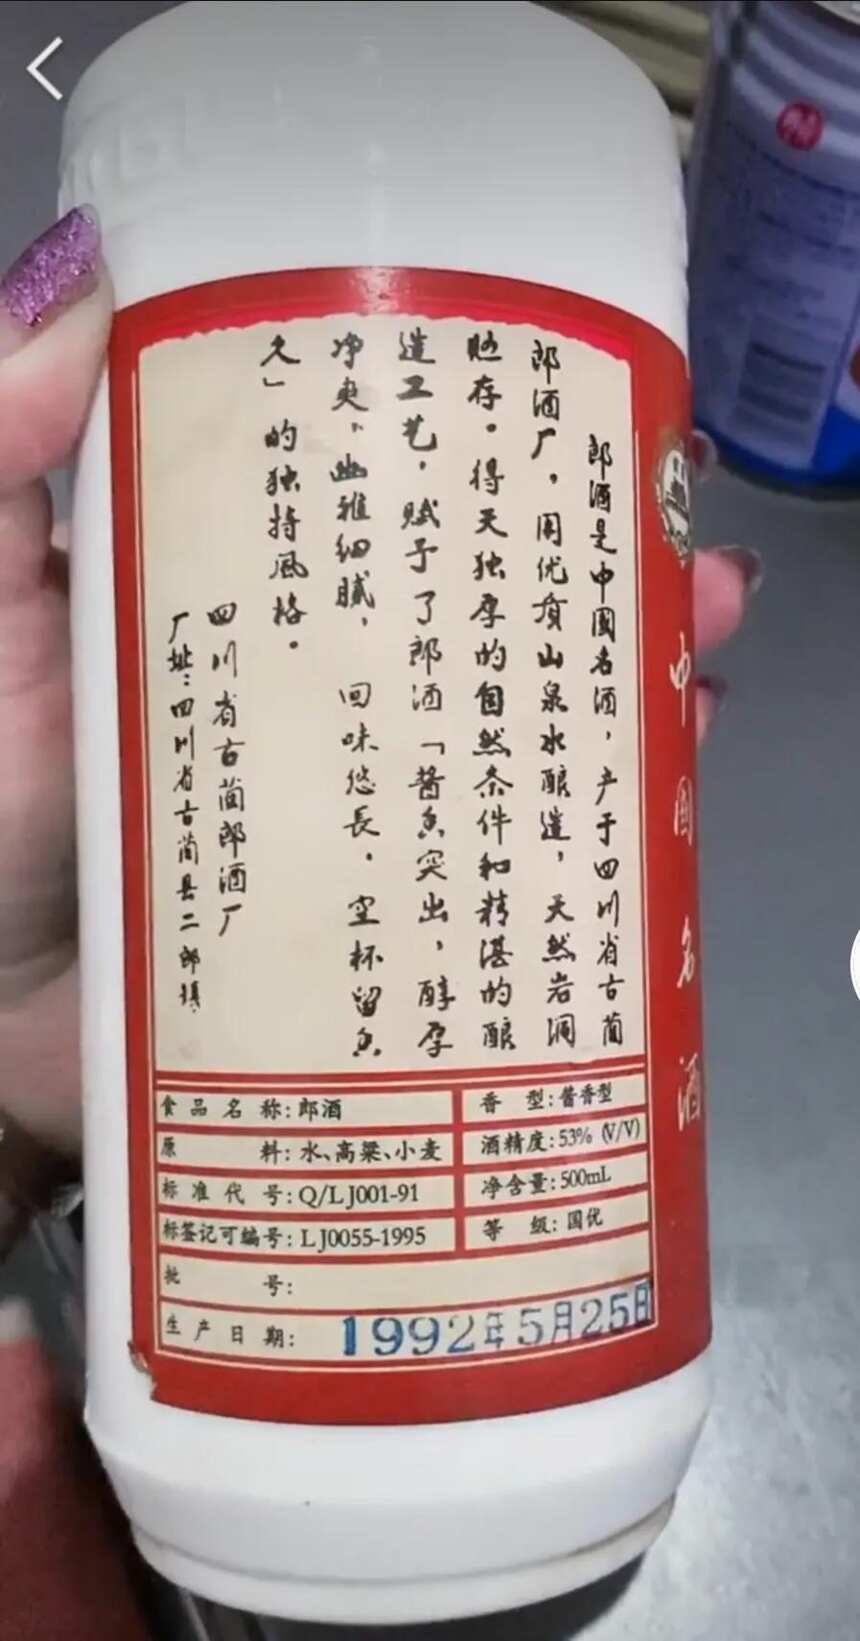 郎酒是中國名酒，产于四川省古蔺
郎酒厂，用优质山泉水酿造，天然岩洞
贮存。得天独厚的自然条件和精湛的酿
造工艺，赋予了郎酒「酱香突出，醇厚
净爽、幽雅细腻，回味悠長，空杯留香
久」的独特风格。
四川省古蔺郎酒厂
厂址：四川省古蔺县二郎镇
食品名称：郎酒
香型：酱香型
原料：水、高粱、小麦
酒精度：53% (V/V)
标准代号：Q/LJ001-91
净含量：500mL
标签记可编号：LJ0055-1995
等级：国优
批号：
生产日期：1992年5月25日
中国名酒